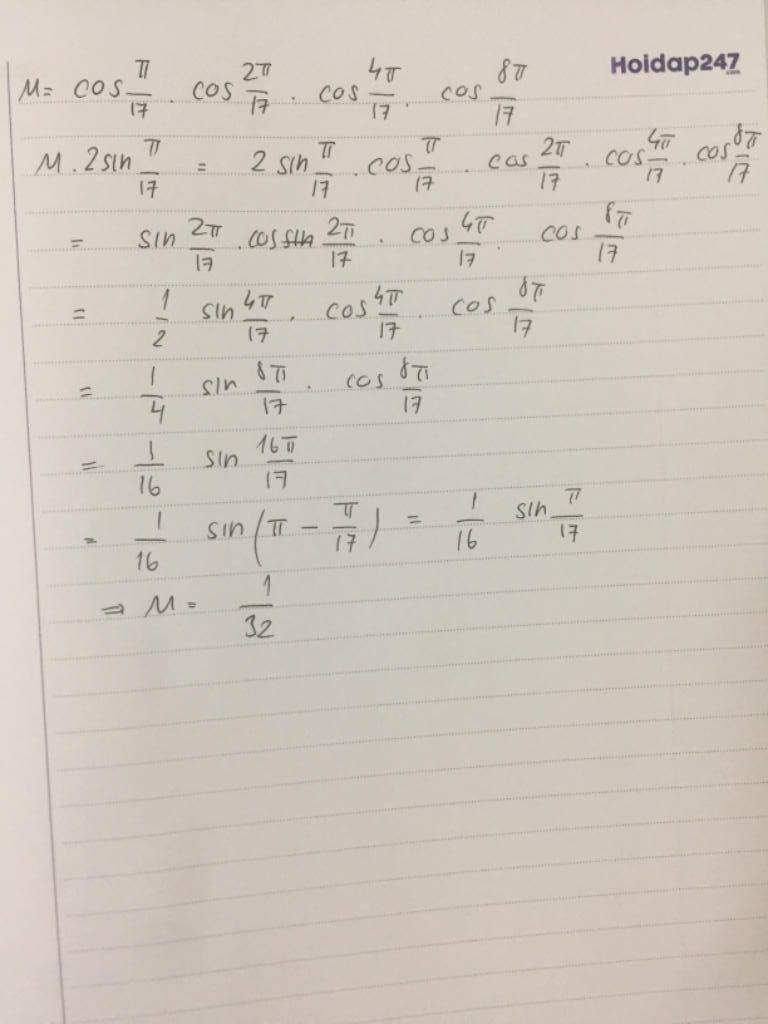 Hoidap247.com
M = cos π/17 . cos 2π/17 . cos 4π/17 . cos 8π/17
M . 2sin π/17 = 2 sin π/17 . cos π/17 . cos 2π/17 . cos 4π/17 . cos 8π/17
= sin 2π/17 . cos sin 2π/17 . cos 4π/17 . cos 8π/17
= 1/2 sin 4π/17 . cos 4π/17 . cos 8π/17
= 1/4 sin 8π/17 . cos 8π/17
= 1/16 sin 16π/17
= 1/16 sin(π - π/17) = 1/16 sin π/17
⇒ M = 1/32